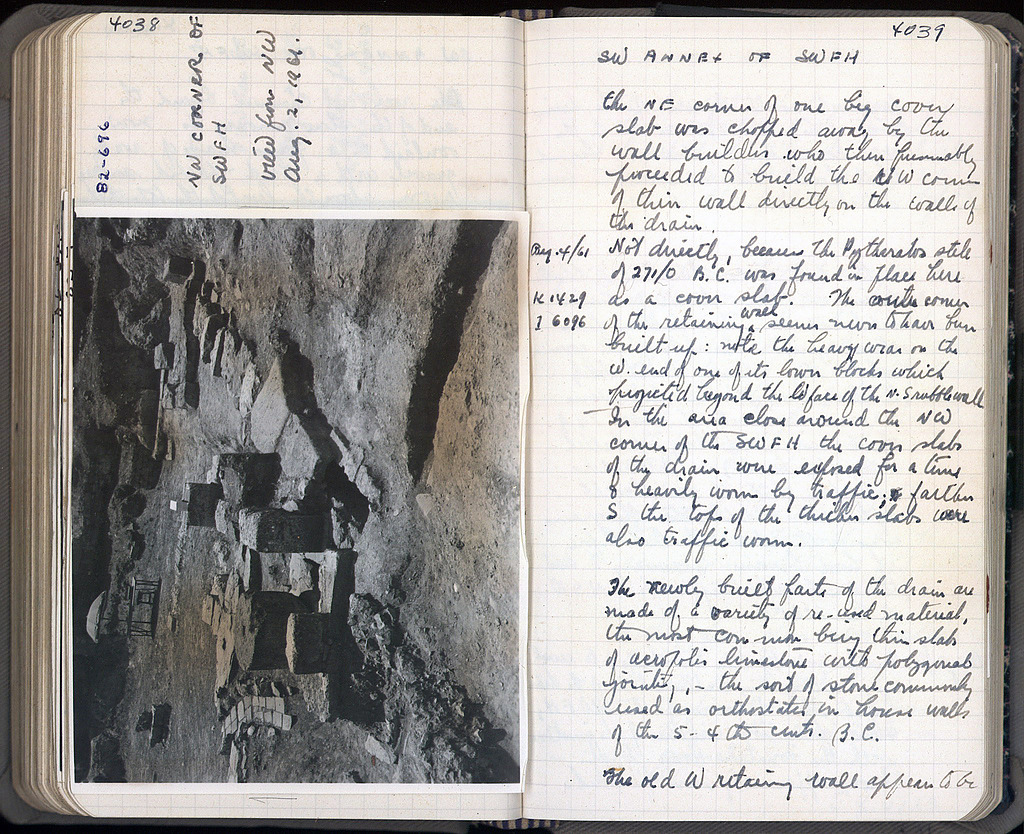 4038
82-696
NW CORNER OF
SWFH
view from NW
Aug. 2, 1961.
4039
SW ANNEX OF SWFH
the NE corner of one big cover
slab was chopped away by the
wall builders who then presumably
proceeded to build the NW corner
of thin wall directly on the walls of
the drain.
Aug. 4/61 Not directly, because the Pytheratos stele
of 271/0 B.C. was found in place here
K 1429 as a cover slab. The corner
I 6096 of the retaining wall seems never to have been
built up: note the heavy wear on the
W. end of one of its lower blocks which
projected beyond the W face of the N-S rubble wall
In the area close around the NW
corner of the SWFH the cover slabs
of the drain were exposed for a time
& heavily worn by traffic; farther
S the tops of the thicker slabs were
also traffic worn.
The newly built parts of the drain are
made of a variety of re-used material,
the most common being thin slabs
of acropolis limestone with polygonal
joints, - the sort of stone commonly
used as orthostates in house walls
of the 5-4th cents. B.C.
The old W retaining wall appears to be